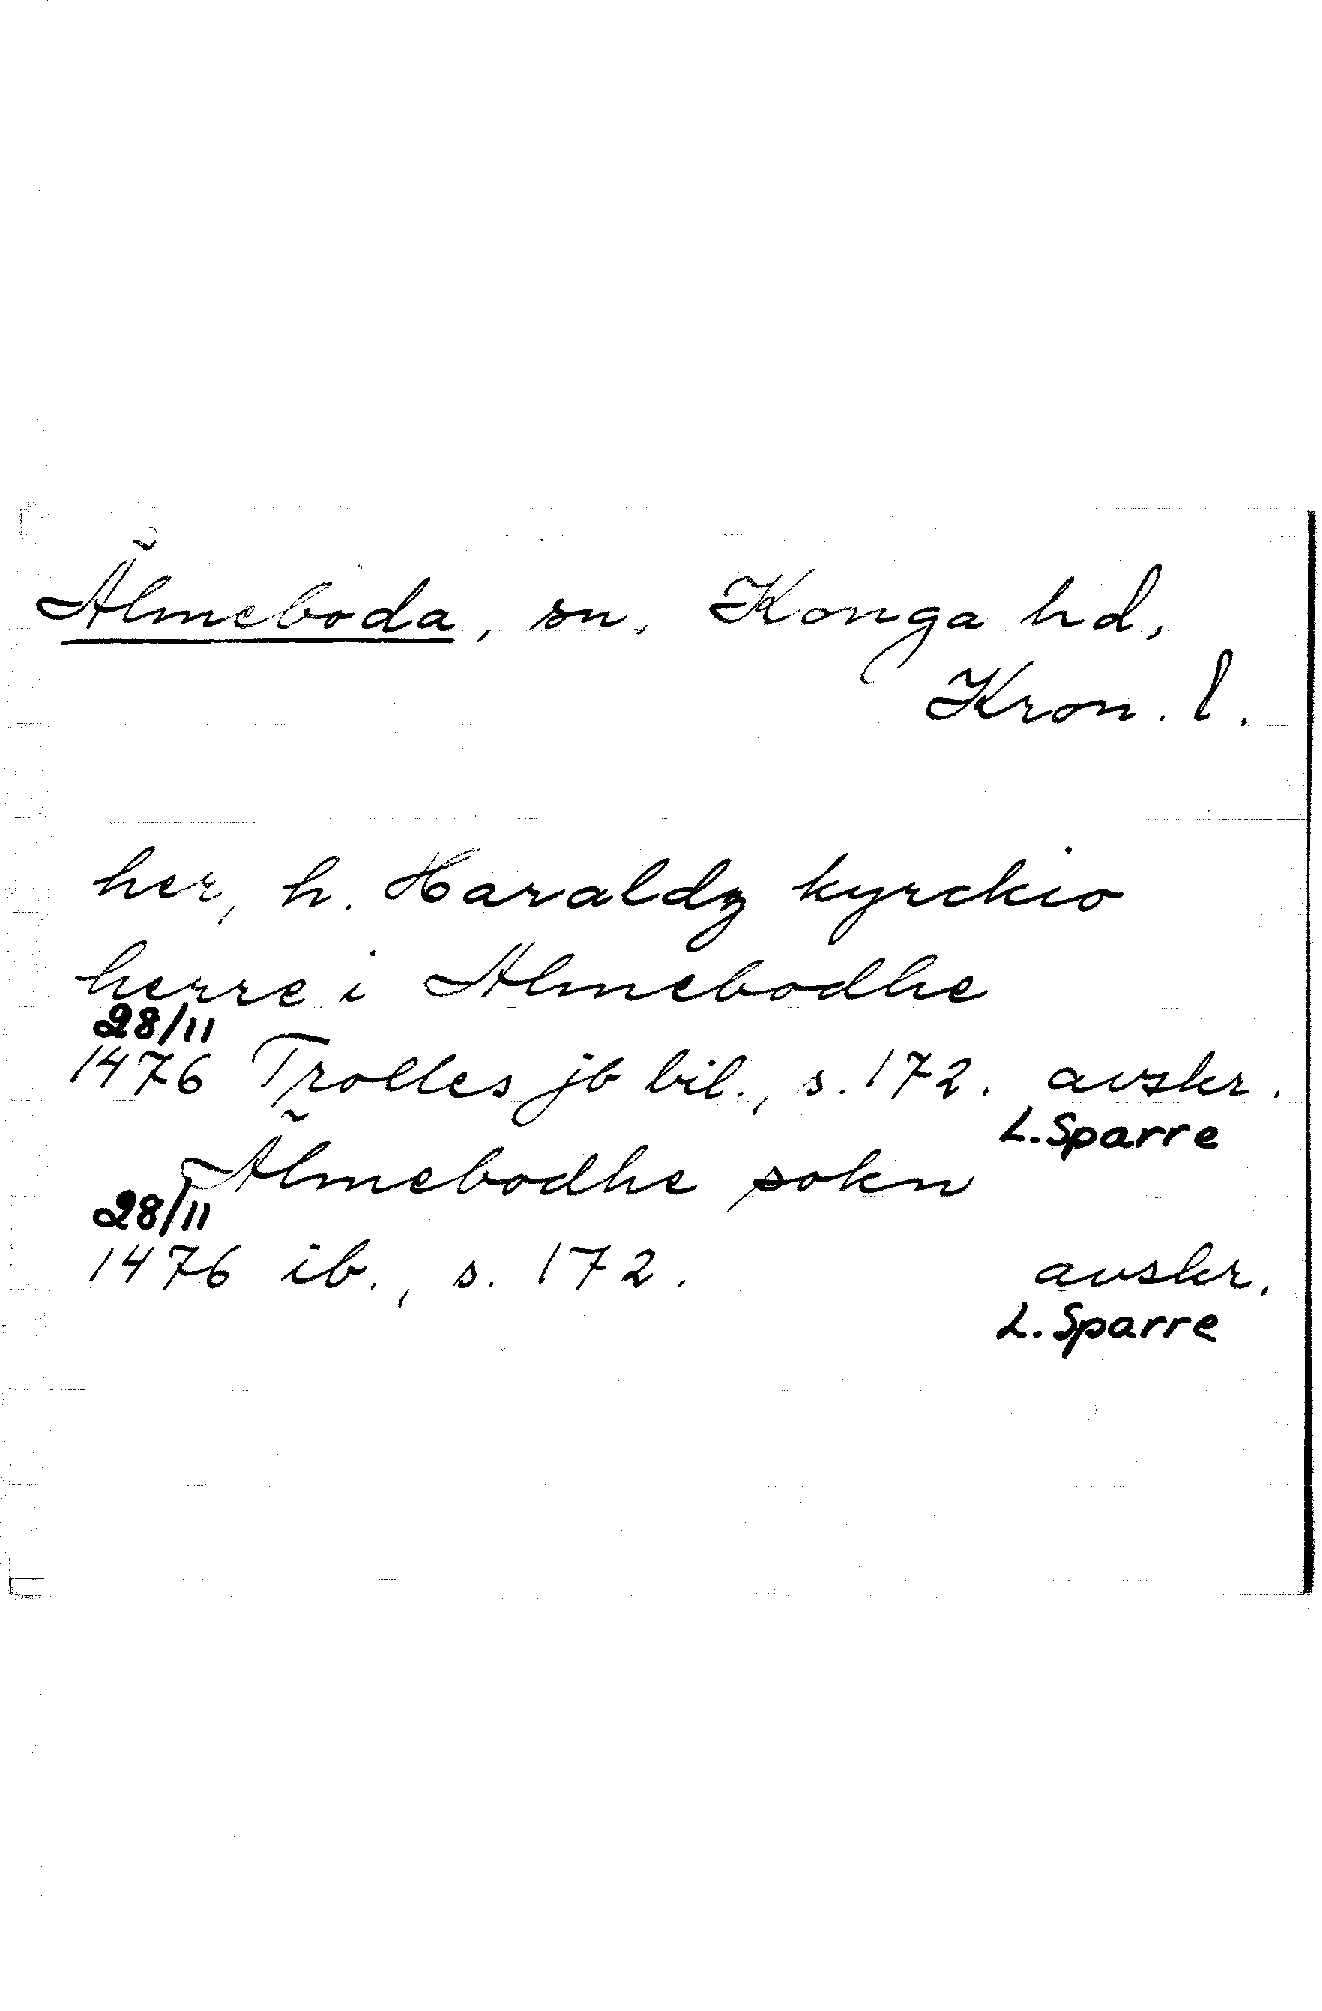 Älmeboda, sn, Konga hd,
Kron. l.
her, h. Haraldz kyrckio
herre i Almebodhe
28/11
1476 Trolles jb bil., s. 172. avskr.
L. Sparre
Älmebodhe sokn
28/11
1476 ib., s. 172. avskr.
L. Sparre